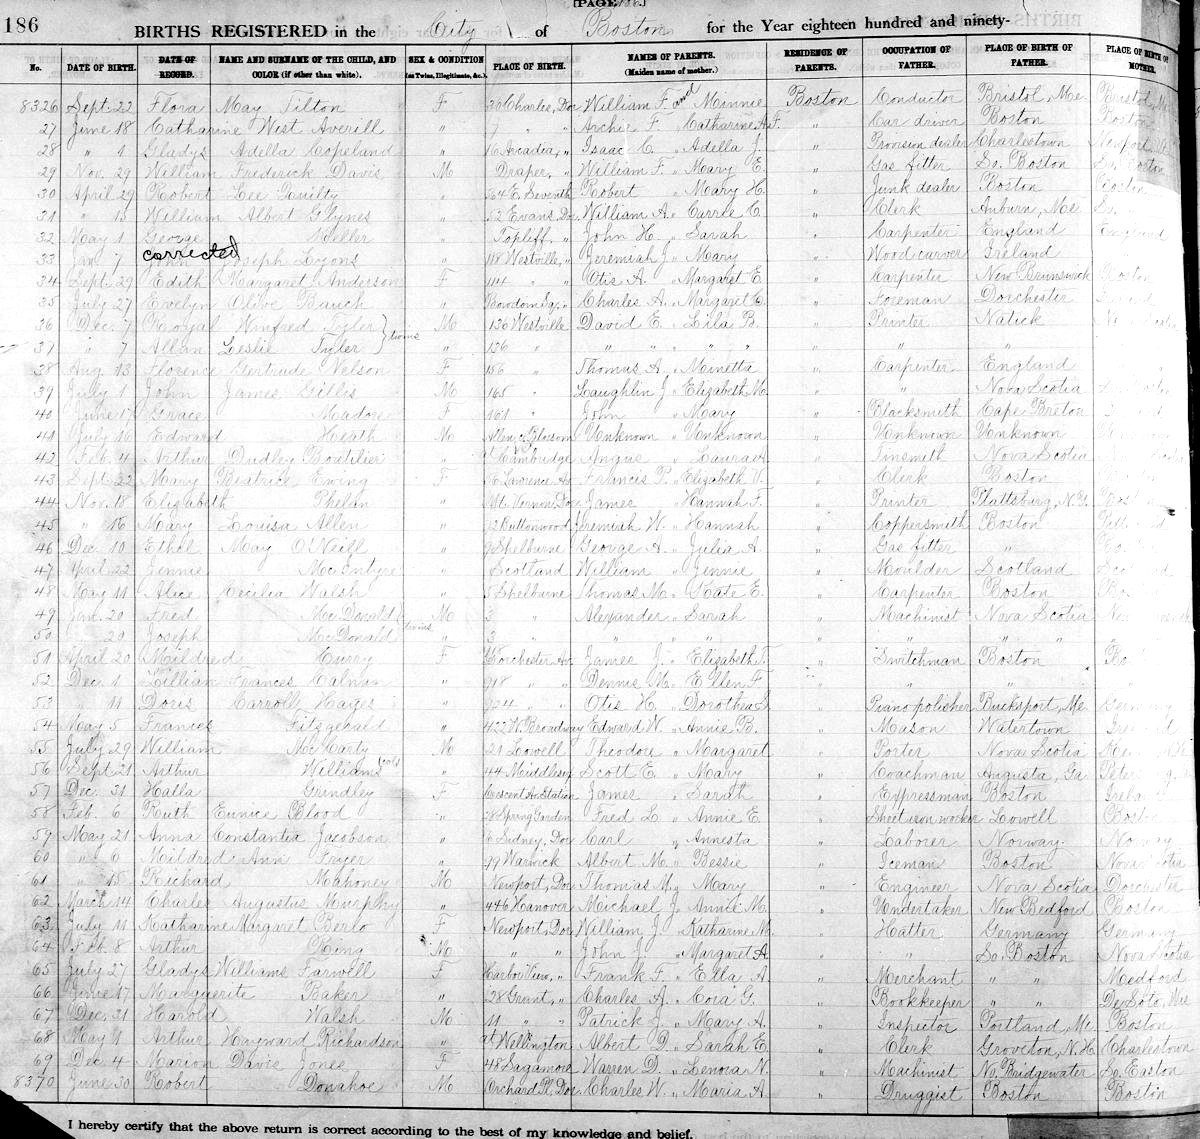 186 BIRTHS REGISTERED in the City of Boston for the Year eighteen hundred and ninety-
No. DATE OF BIRTH. DATE OF RECORD. NAME AND SURNAME OF THE CHILD, AND COLOR (if other than white). SEX & CONDITION (as Twins, Illegitimate, &c.). PLACE OF BIRTH. NAMES OF PARENTS. (Maiden name of mother.) RESIDENCE OF PARENTS. OCCUPATION OF FATHER. PLACE OF BIRTH OF FATHER. PLACE OF BIRTH OF MOTHER.
8326 Sept. 22 Flora May Tilton F 36 Charles, Dor William F. and Minnie Boston Conductor Bristol, Me. Bristol, Me.
27 June 18 Catharine West Averill " 7 " " Archie F. " Catharine A. F. " Car driver Boston Boston
28 " 1 Gladys Adella Copeland " 16 Arcadia, " Isaac C. " Adella J. " Provision dealer Charlestown Newport
29 Nov. 29 William Frederick Davis M Draper, " William F. " Mary E. " Gas fitter So. Boston So. Boston
30 April 29 Robert Lee Quilty " 564 E. Seventh Robert " Mary H. " Junk dealer Boston Boston
31 " 15 William Albert Glynes " 52 Evans, Dor William A. " Carrie C. " Clerk Auburn, Me. So.
32 May 1 George Weller " Topliff, " John H. " Sarah " Carpenter England England
corrected
33 Jan. 7 John Joseph Lyons " 118 Westville, " Jeremiah J. " Mary " Wood carver Ireland
34 Sept. 29 Edith Margaret Anderson F 114 " Otis A. " Margaret E. " Carpenter New Brunswick Boston
35 July 27 Evelyn Olive Bauch " Bowdoin Sq., " Charles A. " Margaret C. " Foreman Dorchester
36 Dec. 7 Royal Winfred Tyler } twins M 136 Westville David E. " Lila B. " Printer Natick
37 " 7 Allan Leslie Tyler " 136 " " " " " " " "
38 Aug. 13 Florence Gertrude Nelson F 156 " Thomas A. " Minetta " Carpenter England
39 July 1 John James Gillis M 165 " Laughlin J. " Elizabeth M. " " Nova Scotia
40 June 17 Grace Madore F 161 " John " Mary " Blacksmith Cape Breton
41 July 16 Edward Heath M Allen, Blossom Unknown " Unknown " Unknown Unknown
42 Feb. 4 Arthur Dudley Boutilier " Cambridge Angus " Laura A. " Tinsmith Nova Scotia
43 Sept. 22 Mary Beatrice Ewing F Lawrence Av Francis P. " Elizabeth V. " Clerk Boston
44 Nov. 18 Elizabeth Phelan " Mt. Vernon, Dor James " Hannah F. " Printer Plattsburg, N.Y.
45 " 16 Mary Louisa Allen " 12 Buttonwood Jeremiah W. " Hannah " Coppersmith Boston
46 Dec. 10 Ethel May O'Neill " 9 Shelburne George A. " Julia A. " Gas fitter "
47 April 22 Jennie McIntyre " Scotland William " Jennie " Moulder Scotland
48 May 11 Alice Cecilia Walsh " 5 Shelburne Thomas M. " Kate E. " Carpenter Boston
49 Jan. 20 Fred McDonald } twins M 3 " Alexander " Sarah " Machinist Nova Scotia
50 " 20 Joseph McDonald " 3 " " " " " " " "
51 April 20 Mildred Curry F Dorchester Av. James J. " Elizabeth T. " Switchman Boston
52 Dec. 1 Lillian Frances Calnan " 918 " Dennis M. " Ellen F. " " "
53 " 11 Doris Carroll Hayes " 924 " Otis H. " Dorothea S. " Piano polisher Bucksport, Me. Germany
54 May 5 Frances Fitzgerald " 422 W. Broadway Edward W. " Annie B. " Mason Watertown
55 July 29 William McCarty M 21 Lowell Theodore " Margaret " Porter Nova Scotia
56 Sept. 21 Arthur Williams (col) " 44 Middlesex Scott E. " Mary " Coachman Augusta, Ga.
57 Dec. 31 Halla Grindley F Crescent Av. Station James " Sarah " Expressman Boston Ireland
58 Feb. 6 Ruth Eunice Blood " 28 Spring Garden Fred L. " Annie E. " Sheet iron worker Lowell Boston
59 May 21 Anna Constantia Jacobson " 6 Sidney, Dor Carl " Annesta " Laborer Norway Norway
60 " 6 Mildred Ann Fryer " 99 Warwick Albert M. " Bessie " Iceman Boston Nova Scotia
61 " 15 Richard Mahoney M Newport, Dor Thomas M. " Mary " Engineer Nova Scotia Dorchester
62 March 14 Charles Augustus Murphy " 446 Hanover Michael J. " Annie M. " Undertaker New Bedford Boston
63 July 11 Katharine Margaret Berlo F Newport, Dor William J. " Katharine M. " Hatter Germany Germany
64 Feb. 8 Arthur King M " " John J. " Margaret A. " " So. Boston Nova Scotia
65 July 27 Gladys Williams Farwell F Harbor View, " Frank F. " Ella A. " Merchant " " Medford
66 June 17 Marguerite Baker " 28 Grant, " Charles A. " Cora G. " Bookkeeper " " De Soto, Mo
67 Dec. 31 Harold Walsh M 11 " " Patrick J. " Mary A. " Inspector Portland, Me. Boston
68 May 11 Arthur Hayward Richardson " Wellington Albert D. " Sarah E. " Clerk Groveton, N.H. Charlestown
69 Dec. 4 Marion Davis Jones F 48 Sagamore Warren D. " Lenora N. " Machinist No. Bridgewater So. Easton
8370 June 30 Robert Donahoe M Orchard Pl, Dor Charles W. " Maria A. " Druggist Boston Boston
I hereby certify that the above return is correct according to the best of my knowledge and belief.